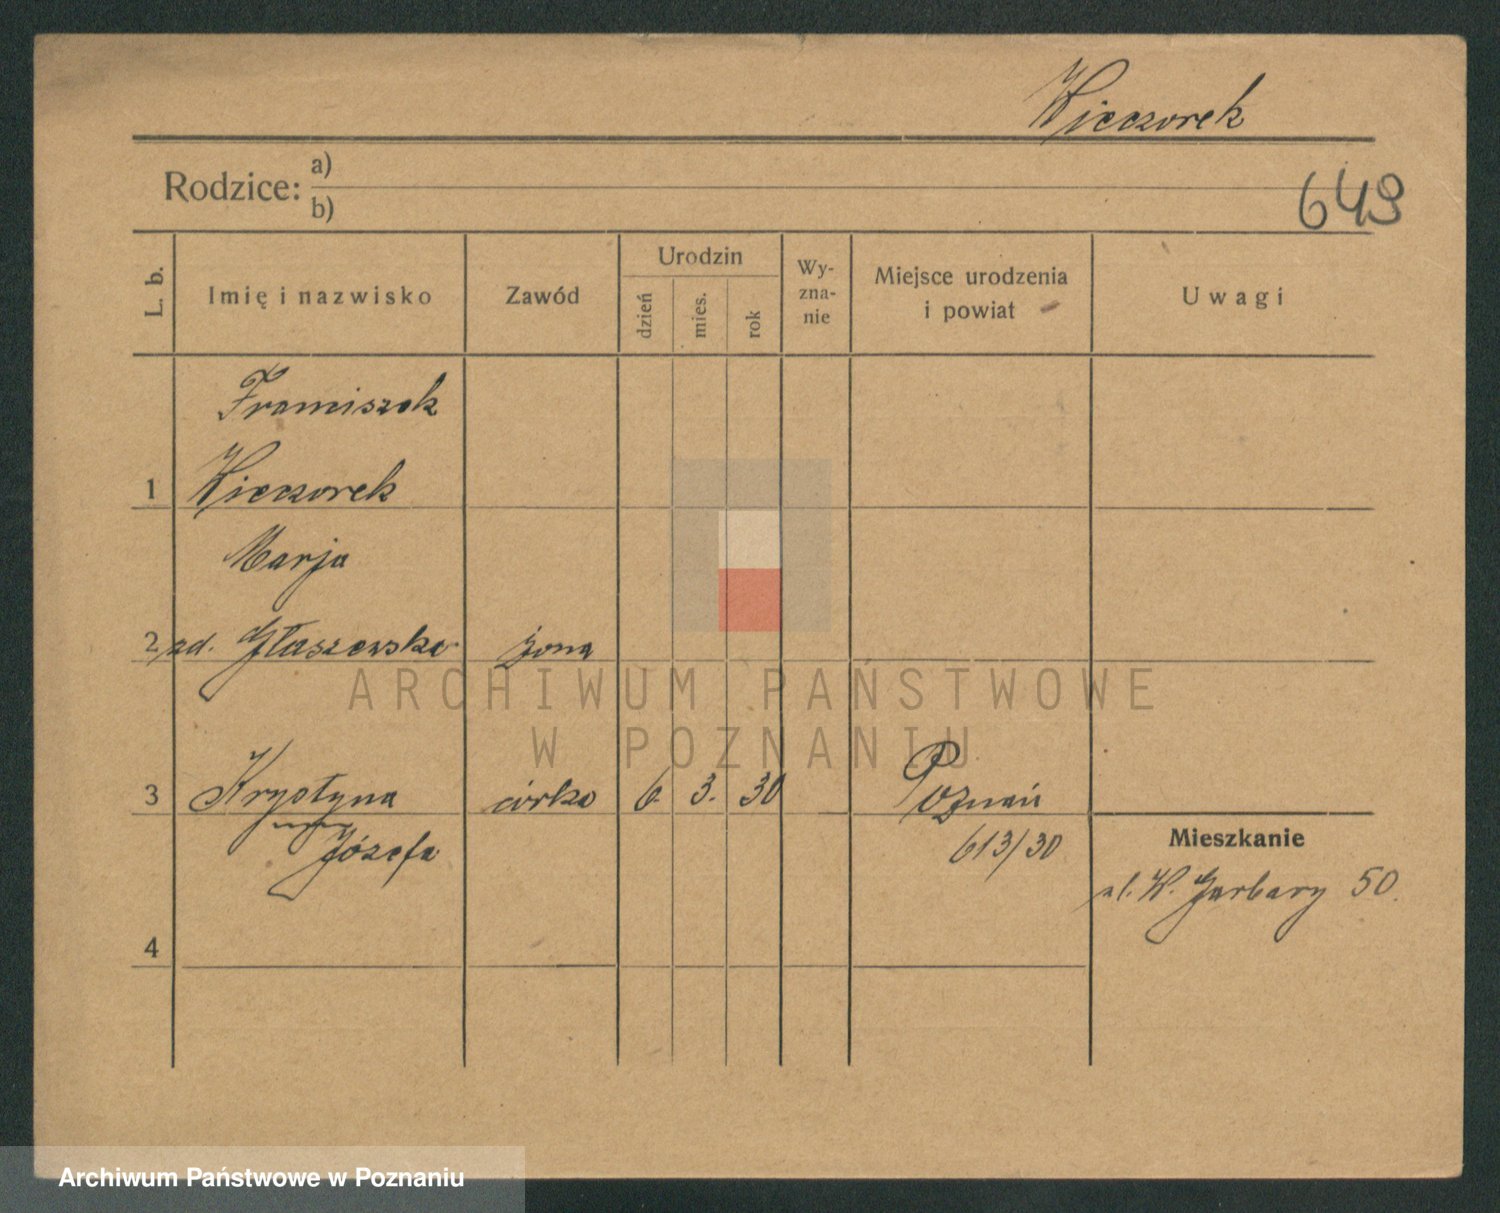 Wieczorek
Rodzice: a)
b)
649
L. b.
Imię i nazwisko
Zawód
Urodzin
dzień
mies.
rok
Wy-
zna-
nie
Miejsce urodzenia
i powiat
Uwagi
Franciszek
1 Wieczorek
Marja
2 zd. Głaszewska żona
3 Krystyna córka 6. 3. 30 Poznań
Józefa 613/30
Mieszkanie
ul. W. Garbary 50.
4
ARCHIWUM PAŃSTWOWE
W POZNANIU
Archiwum Państwowe w Poznaniu